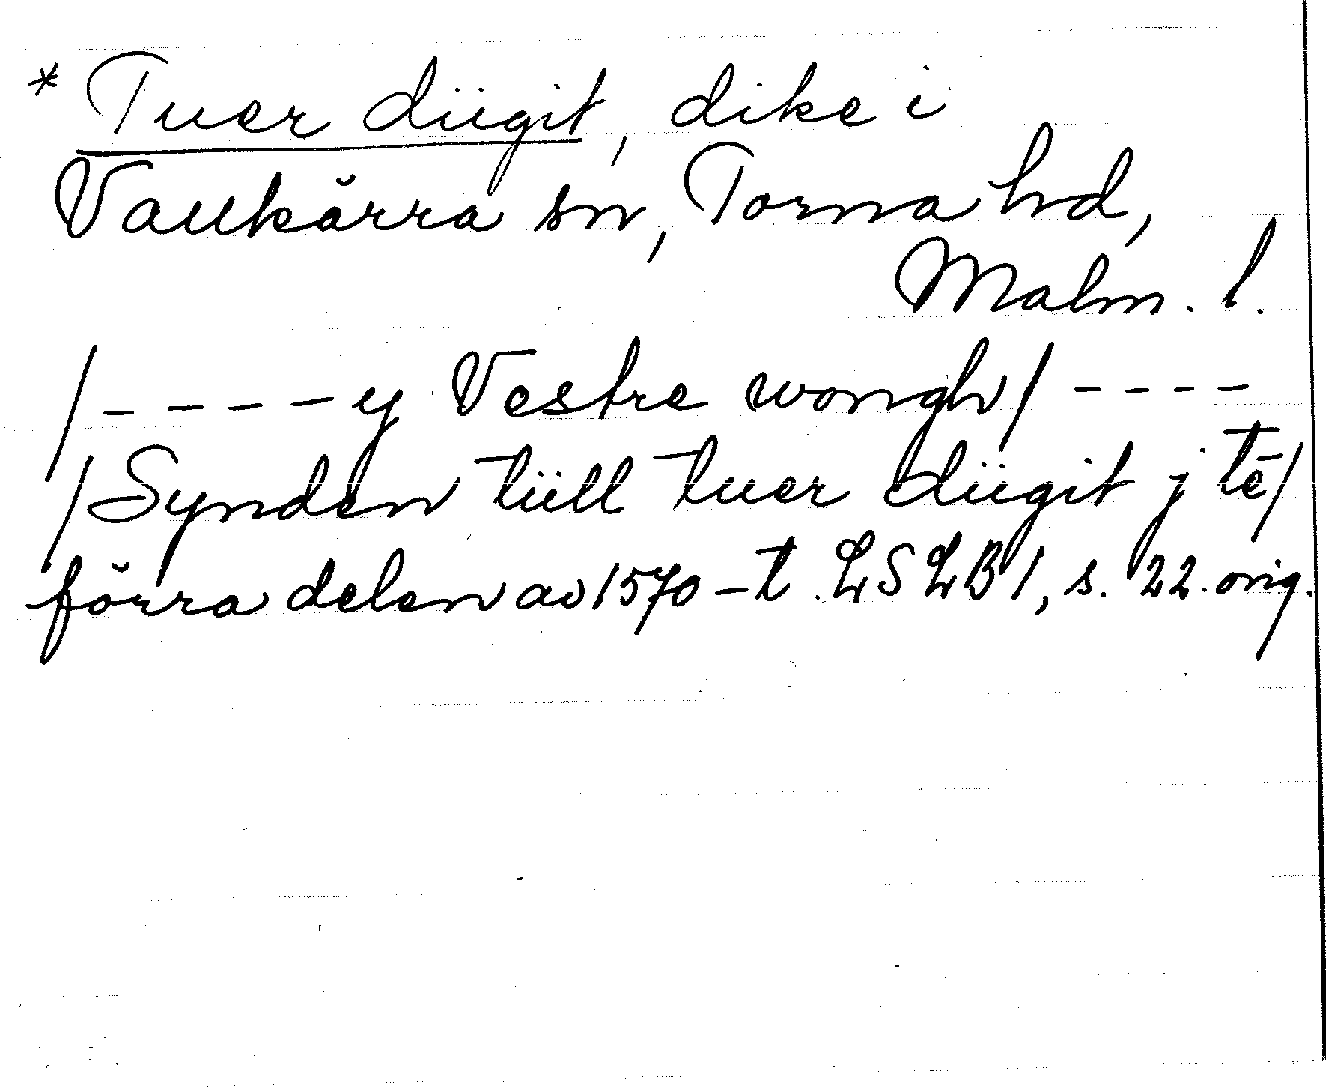 * Tuer diigit, dike i
Vallkärra sn, Torna hd,
Malm. l.
/- - - - y Vestre wongh/ - - - -
/Synden tiill tuer diigit j tē/
förra delen av 1570-t. LSLB 1, s. 22. orig.